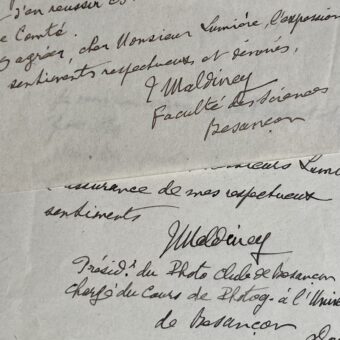 J'en réussir
Comité.
agréer, cher Monsieur Lumière, l'expression
sentiments respectueux et dévoués.
J Maldiney
Faculté des Sciences
Besançon
Messieurs Lumi
l'assurance de mes respectueux
sentiments
J Maldiney
Présidt. du Photo Club de Besançon
chargé du Cours de Photog. à l'Unive
de Besançon